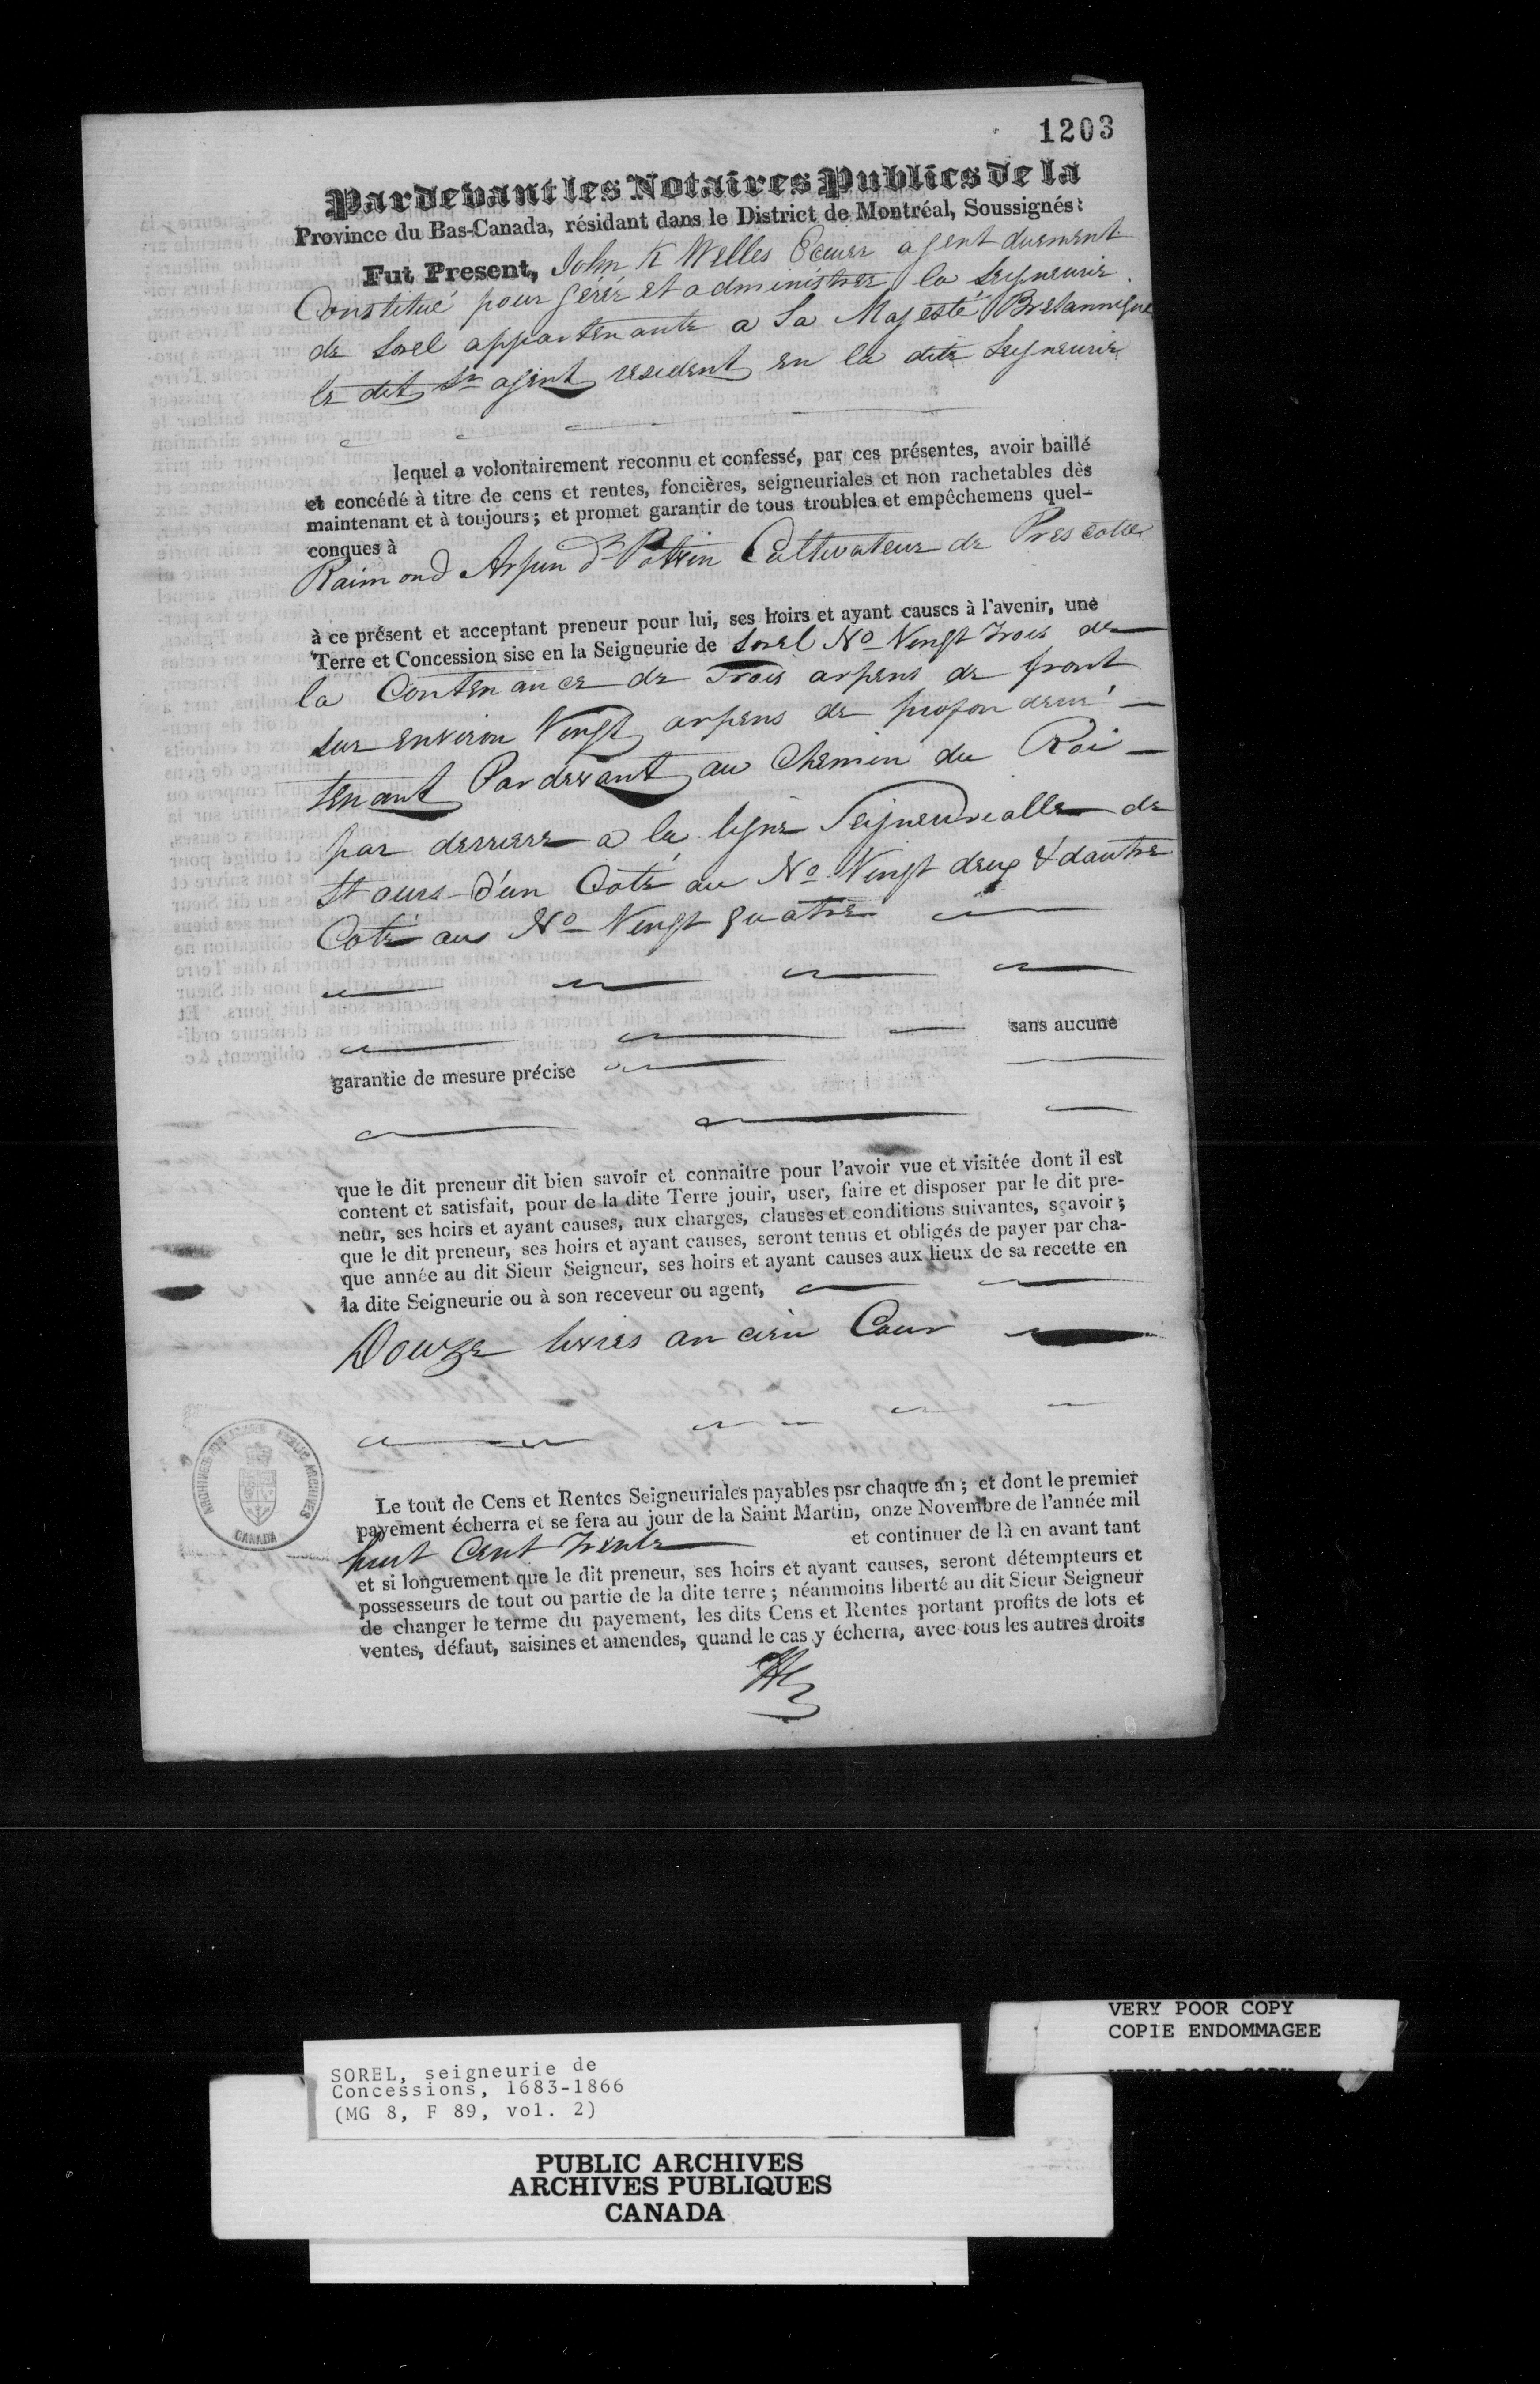 1203
Pardevant les Notaires Publics de la
Province du Bas-Canada, résidant dans le District de Montréal, Soussignés:
Fut Present, John K Welles Ecuier agent duement
Constitué pour gérér et administrer la Seigneurie
de Sorel appartenante a Sa Majesté Bretannique
le dit Sr agent resident en la dite Seigneurie
lequel a volontairement reconnu et confessé, par ces présentes, avoir baillé
et concédé à titre de cens et rentes, foncières, seigneuriales et non rachetables dès
maintenant et à toujours; et promet garantir de tous troubles et empêchemens quel-
conques à
Raimond Arpin Cultivateur de
à ce présent et acceptant preneur pour lui, ses hoirs et ayant causes à l'avenir, une
Terre et Concession sise en la Seigneurie de Sorel No Vingt Trois de
la Contenance de Trois arpens de front
sur environ Vingt arpens de profondeur
tenant Pardevant au Chemin du Roi
par derriere a la ligne Seigneurialle de
St ours d'un Coté au No Vingt deux & dautre
Coté au No Vingt quatre
sans aucune
garantie de mesure précise
que le dit preneur dit bien savoir et connaitre pour l'avoir vue et visitée dont il est
content et satisfait, pour de la dite Terre jouir, user, faire et disposer par le dit pre-
neur, ses hoirs et ayant causes, aux charges, clauses et conditions suivantes, sçavoir;
que le dit preneur, ses hoirs et ayant causes, seront tenus et obligés de payer par cha-
que année au dit Sieur Seigneur, ses hoirs et ayant causes aux lieux de sa recette en
la dite Seigneurie ou à son receveur ou agent,
Douze livres ancien Cour
Le tout de Cens et Rentes Seigneuriales payables psr chaque an; et dont le premier
payement écherra et se fera au jour de la Saint Martin, onze Novembre de l'année mil
huit Cent Trente et continuer de là en avant tant
et si longuement que le dit preneur, ses hoirs et ayant causes, seront détempteurs et
possesseurs de tout ou partie de la dite terre; néanmoins liberté au dit Sieur Seigneur
de changer le terme du payement, les dits Cens et Rentes portant profits de lots et
ventes, défaut, saisines et amendes, quand le cas y écherra, avec tous les autres droits
PUBLIC ARCHIVES
CANADA
VERY POOR COPY
COPIE ENDOMMAGEE
VERY POOR COPY
SOREL, seigneurie de
Concessions, 1683-1866
(MG 8, F 89, vol. 2)
PUBLIC ARCHIVES
ARCHIVES PUBLIQUES
CANADA